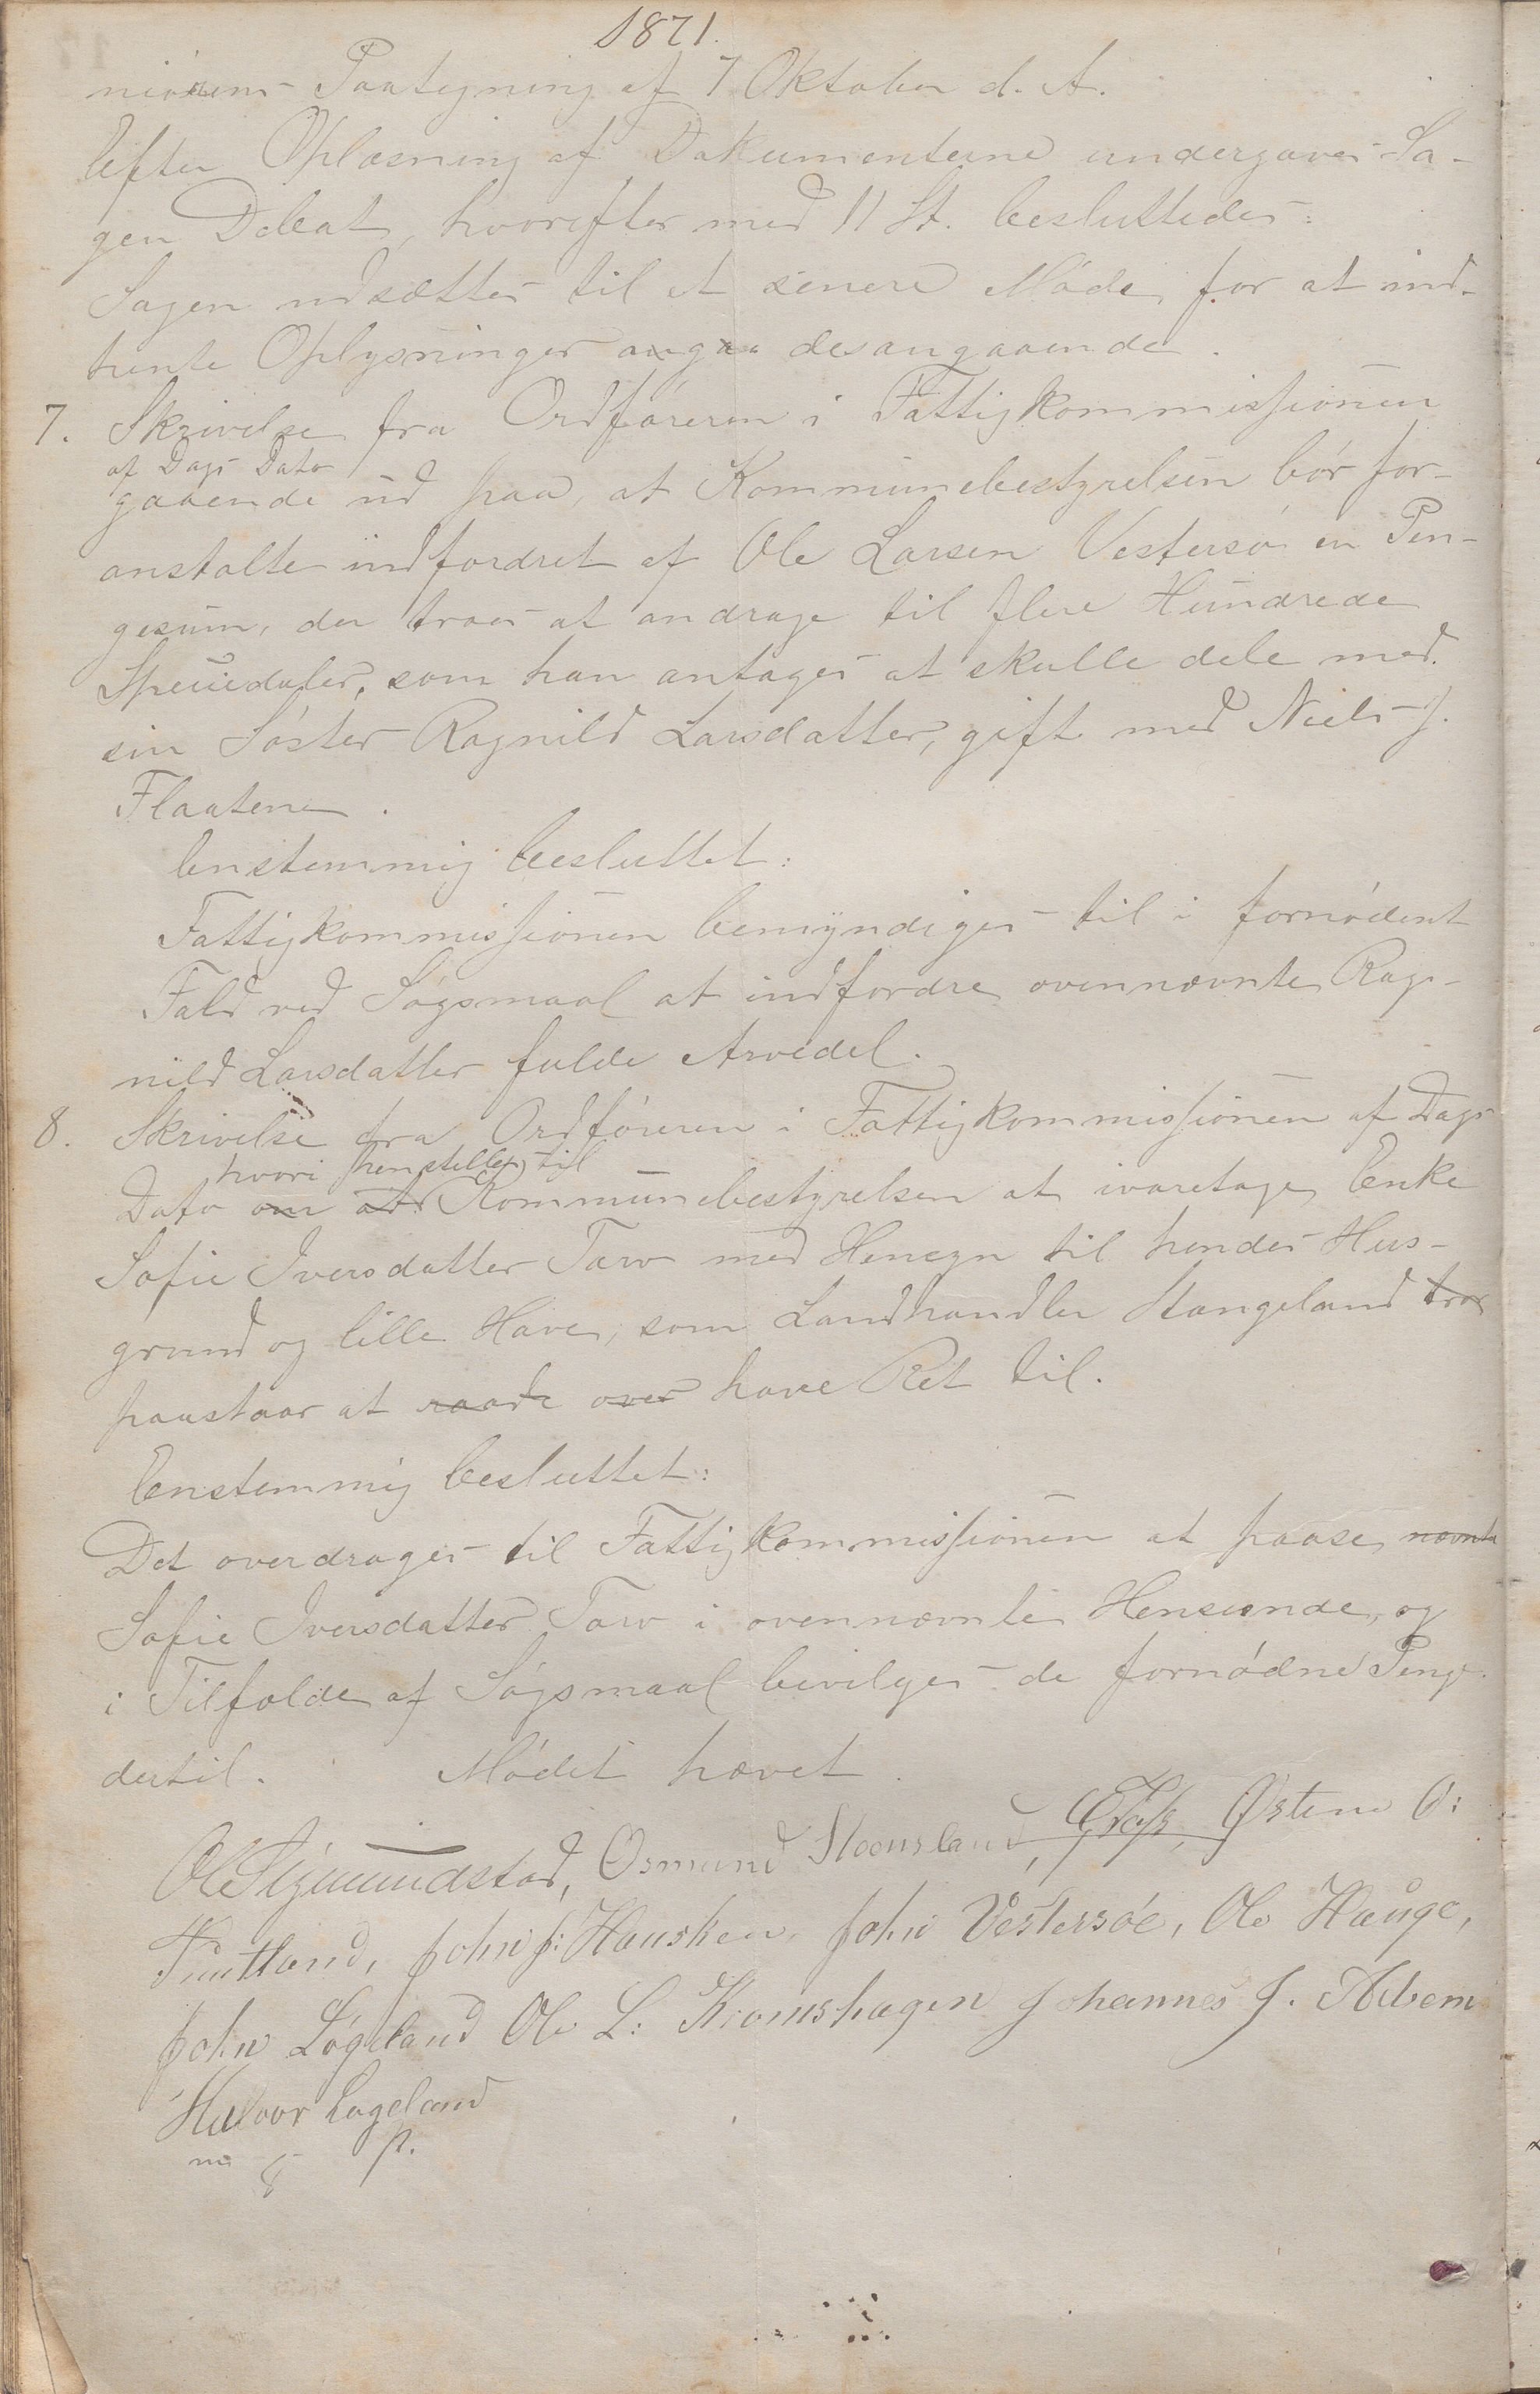 1871.
nionens Paategning af 7 Oktober d. A.
Efter Oplæsning af Dokumenterne undergaves Sa-
gen Debat, hvorefter med 11 St. besluttedes:
Sagen udsættes til et senere Møde for at ind-
hente Oplysninger angaa desangaaende.
7. Skrivelse fra Ordføreren i Fattigkommissionen
af Dags Dato
gaaende ud paa, at Kommunebestyrelsen bør for-
anstalte indfordret af Ole Larsen Vestersø en Pen-
gesum, der troes at andrage til flere Hundrede
Speciedaler, som han antages at skulle dele med
sin Søster Ragnild Larsdatter, gift med Niels J.
Flaatene.
Enstemmig besluttet:
Fattigkommissionen bemyndiges til i fornødent
Fald ved Søgsmaal at indfordre ovennævnte Rag-
nild Larsdatter fulde Arvedel.
8. Skrivelse fra Ordføreren i Fattigkommissionen af Dags
hvori henstilles til
Dato om at Kommunebestyrelsen at ivaretage Enke
Sofie Iversdatter Tarv med Hensyn til hendes Hus-
grund og lille Have, som Landhandler Stangeland tror
paastaar at raade over have Ret til.
Enstemmig besluttet:
Det overdrages til Fattigkommissionen at paase nævnte
Sofie Iversdatter Tarv i ovennævnte Henseende, og
i Tilfælde af Søgsmaal bevilges de fornødne Penge
dertil. Mødet hævet.
O Sigmundstad, Osmund Stensland, Østen O:
Tuntland, John J: Hausken, John Vestersøe, Ole Hauge,
John Løgeland Ole L: Kromshagen Johannes J.
Halvor Lageland
m p.